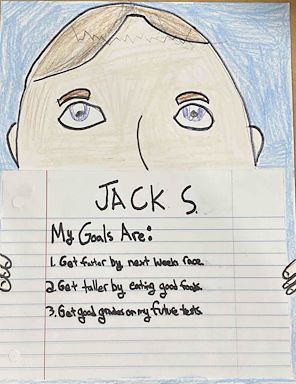 JACK S.
My Goals Are:
1. Get faster by next weeks race.
2. Get taller by eating good foods.
3. Get good grades on my future tests.